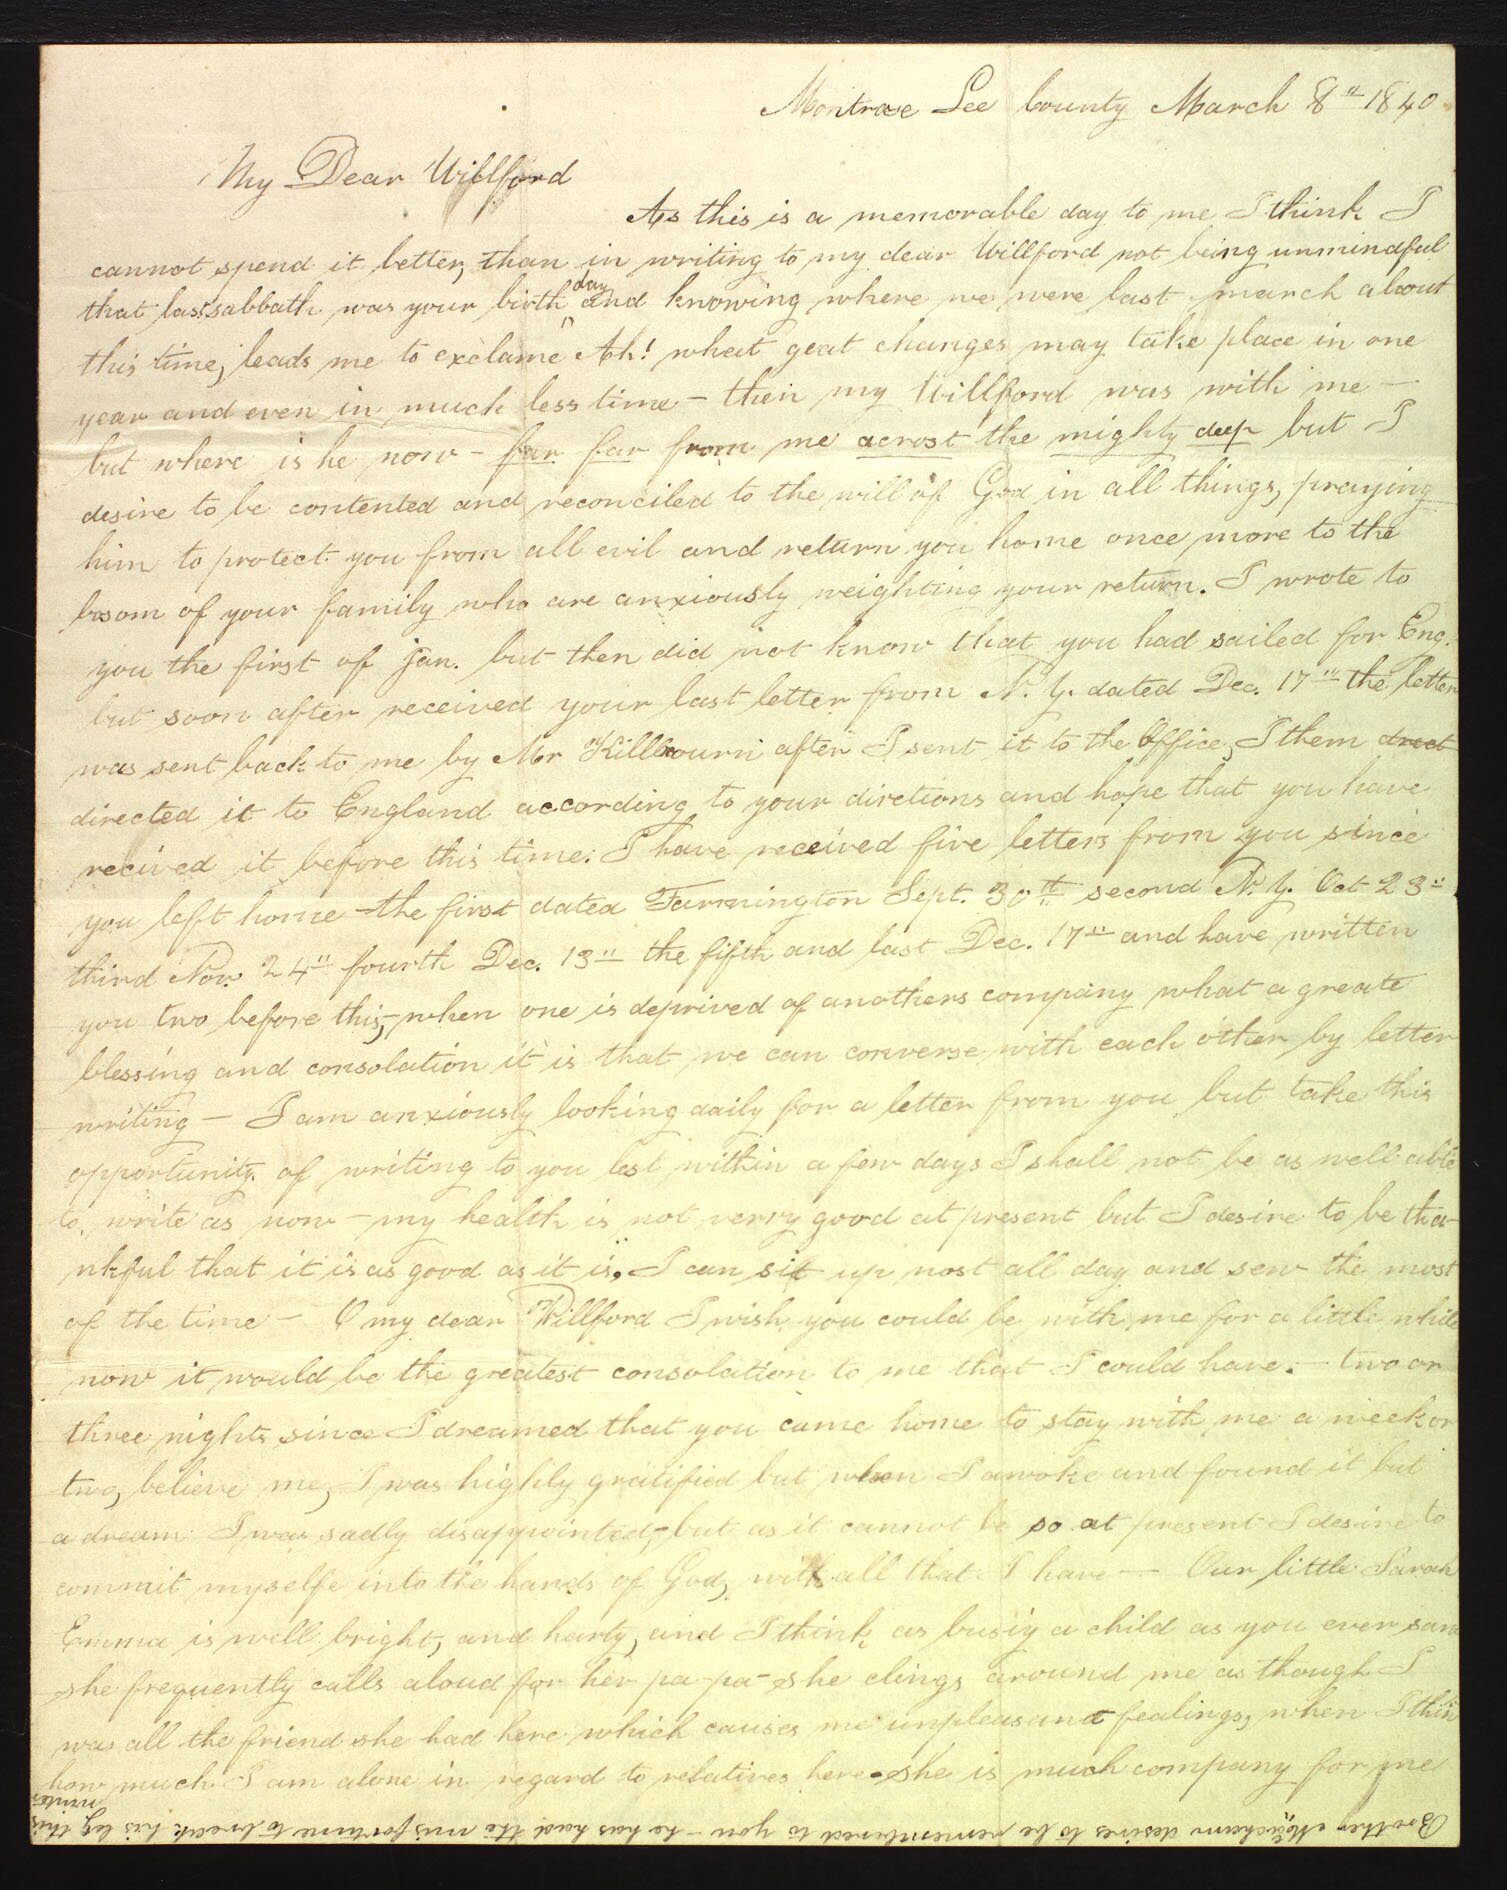 Montrose Lee County March 8th 1840
My Dear Willford
As this is a memorable day to me I think I
cannot spend it better, than in writing to my dear Willford not being unmindful
that last sabbath was your birth day and knowing where we were last march about
this time, leads me to exclame "Ah! what geat changes may take place in one
year and even in much less time – then my Willford was with me –
but where is he now – far far from me acrost the mighty deep but I
desire to be contented and reconciled to the will of God in all things, praying
him to protect you from all evil and return you home once more to the
bosom of your family who are anxiously weighting your return. I wrote to
you the first of jan. but then did not know that you had sailed for Eng.
but soon after received your last letter from N. Y. dated Dec. 17th the letter
was sent back to me by Mr Killbourn after I sent it to the Office, I them drect
directed it to England according to your diretions and hope that you have
recived it before this time. I have received five letters from you since
you left home – the first dated Farmington Sept. 30th second N. Y. Oct 23"
third Nov. 24" fourth Dec. 13" the fifth and last Dec. 17" and have written
you two before this;– when one is deprived of anothers company what a greate
blessing and consolation it is that we can converse with each other by letter
writing – I am anxiously looking daily for a letter from you but take this
opportunity of writing to you lest within a few days I shall not be as well able
to write as now – my health is not verry good at present but I desire to be tha-
nkful that it is as good as it is, I can sit up most all day and sew the most
of the time – O my dear Willford I wish you could be with me for a little while
now it would be the greatest consolation to me that I could have. – two or
three nights since I dreamed that you came home to stay with me a week or
two, believe me, I was highly gratified but when I awoke and found it but
a dream I was sadly disappointed,– but as it cannot be so at present I desire to
commit myselfe into the hands of God, with all that I have – Our little Sarah
Emma is well bright, and harty, and I think as busiy a child as you ever saw
she frequently calls aloud for her pa-pa – she clings around me as though I
was all the friend she had here which causes me unpleasant fealings, when I think
how much I am alone in regard to relatives here – she is much company for me
Brother desires to be remembered to you – he has had the misfortune to break his leg this
winter